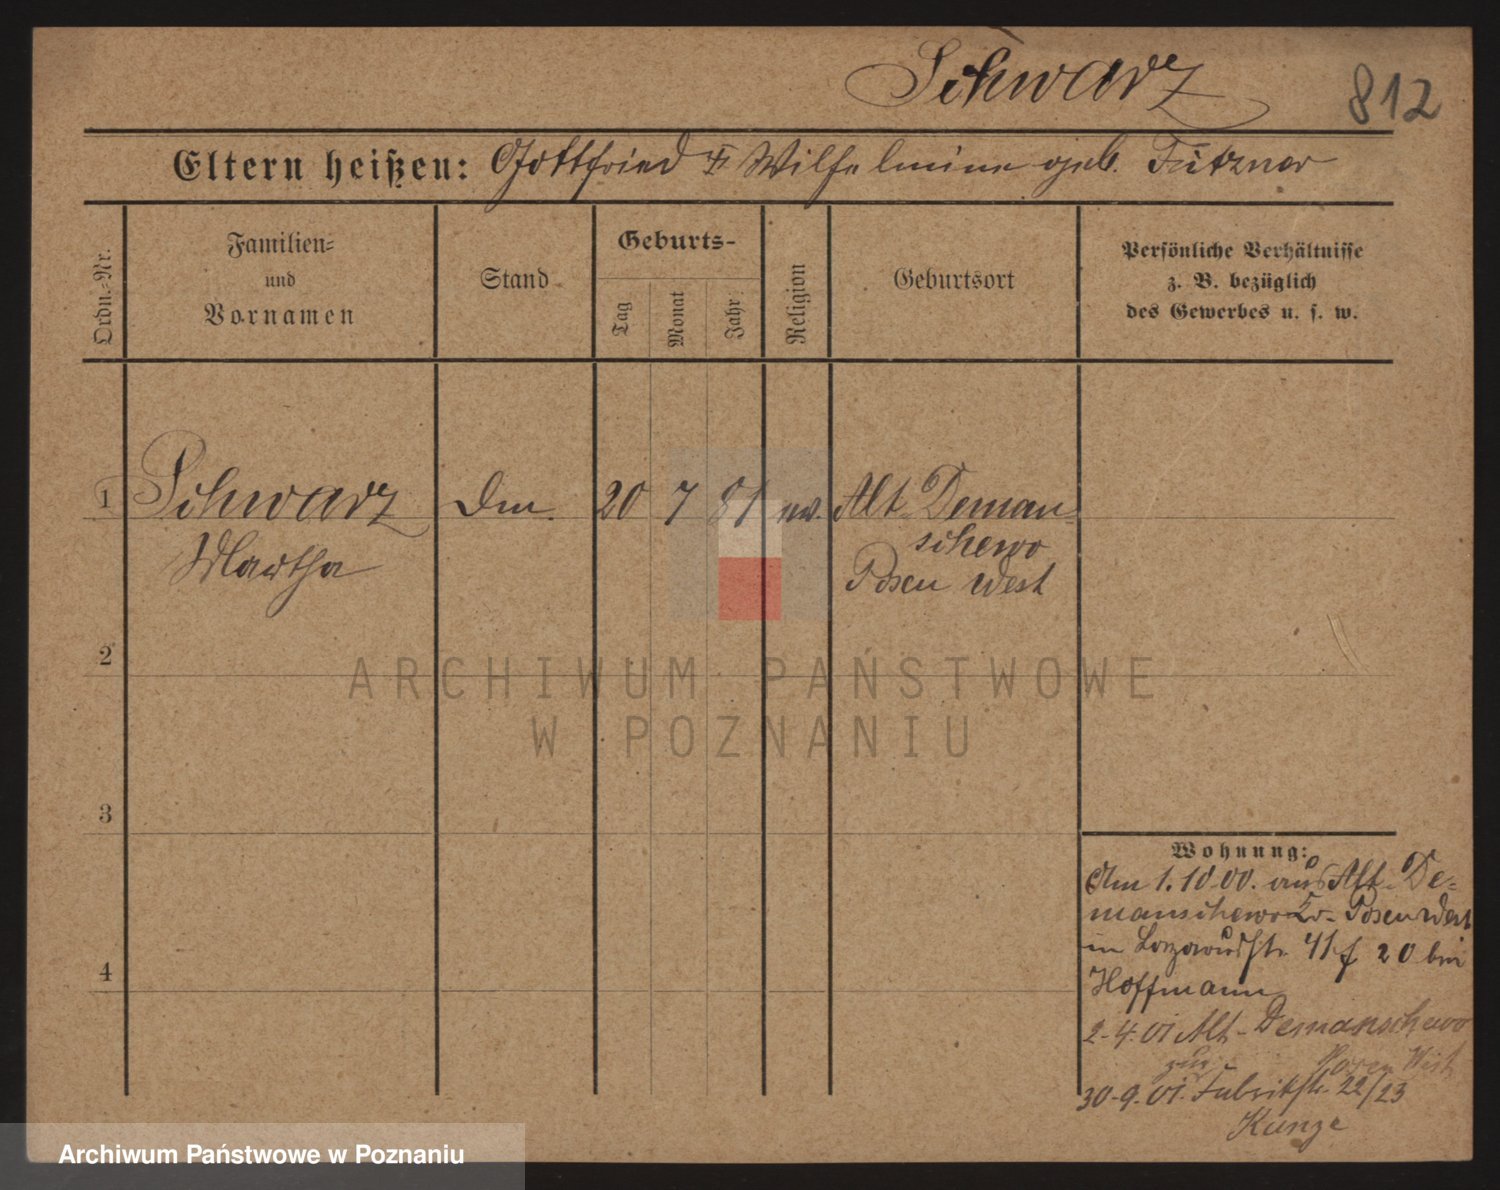 Schwarz 812
Eltern heißen: Gottfried & Wilhelmine geb. Fützner
Ordn.-Nr.
Familien-
und
Vornamen
Stand
Geburts-
Tag
Monat
Jahr
Religion
Geburtsort
Persönliche Verhältnisse
z. B. bezüglich
des Gewerbes u. s. w.
1 Schwarz Dm. 20 7 81 ev. Alt Deman-
schewo
Martha Posen West
2
3
4
Wohnung:
Am 1.10.00. aus Alt-De-
manschewo Posen West
in 41 20 bei
Hoffmann
2.4.01 Alt-Demanschewo
zur. Posen West
30.9.01. Fabrikstr. 22/23
Kunze
ARCHIWUM PAŃSTWOWE
W POZNANIU
Archiwum Państwowe w Poznaniu